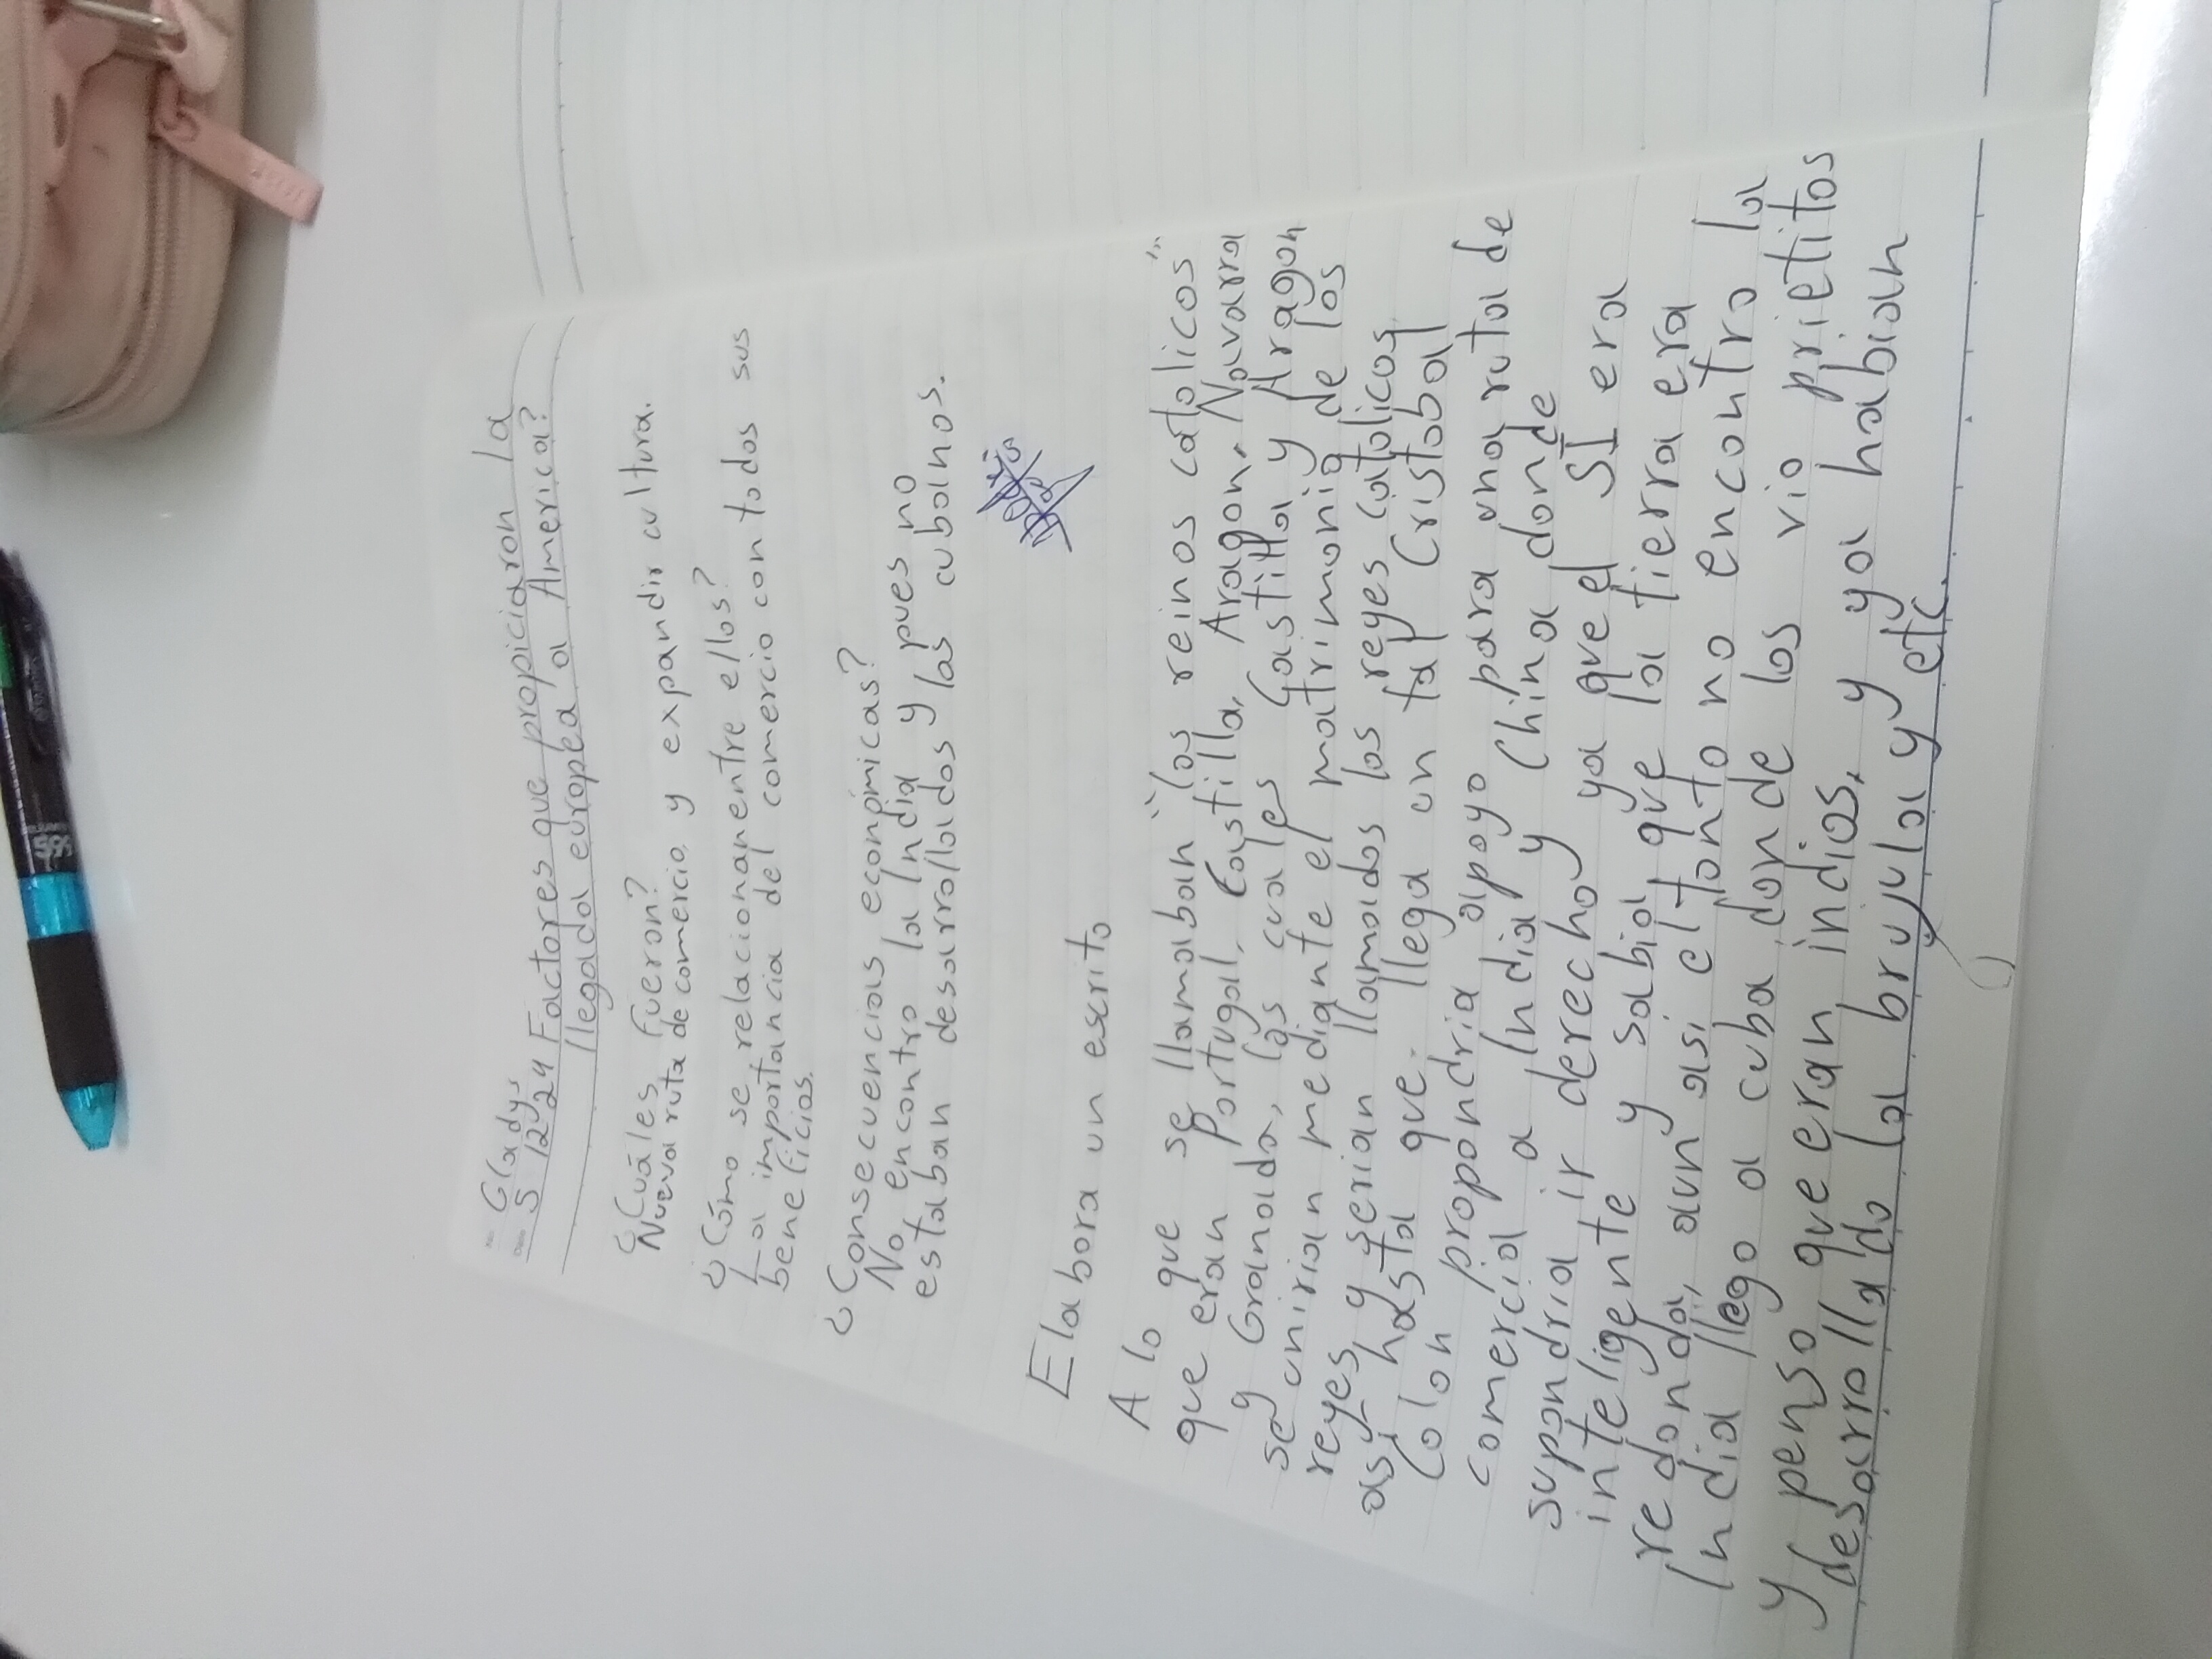 Gladys
5 12 24 Factores que propiciaron la
llegada europea a America?
¿Cuáles fueron?
Nueva ruta de comercio, y expandir cultura.
¿Cómo se relacionan entre ellos?
La importancia del comercio con todos sus
beneficios.
¿Consecuencias económicas?
No encontro la India y pues no
estaban desarrollados y los cubanos.
Elabora un escrito
A lo que se llamaban "los reinos catolicos"
que eran Portugal, Castilla, Aragon, Navarra
y Granada, las cuales Castilla y Aragon
se unirian mediante el matrimonio de los
reyes y serian llamados los reyes catolicos,
asi hasta que. llega un tal Cristobal
Colon propondria apoyo para una ruta de
comercial a India y China donde
supondria ir derecho, ya que el SI era
inteligente y sabia que la tierra era
redonda, aun asi el tonto no encontro la
India llego a cuba donde los vio prietitos
y penso que eran indios, y ya habian
desarrollado la brujula y etc.